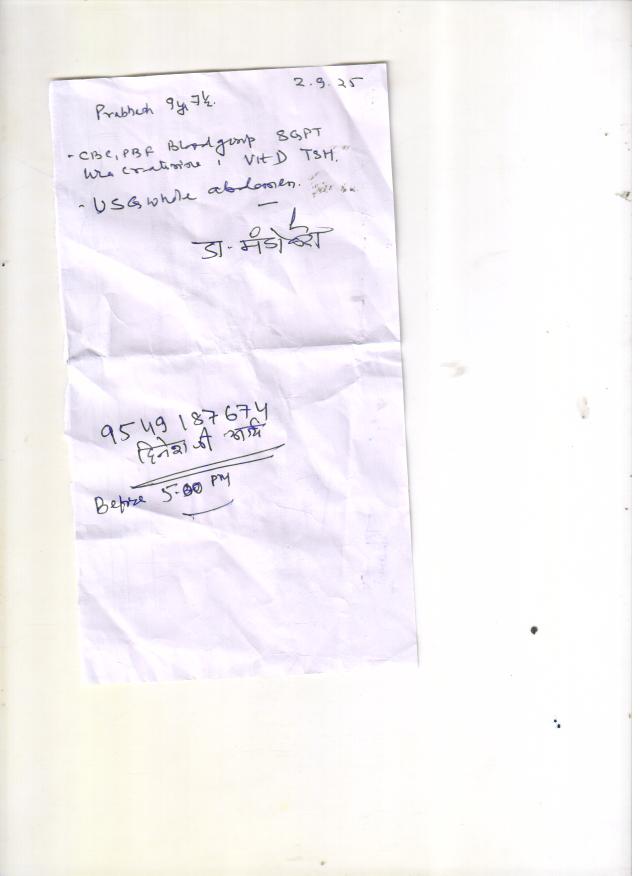 2.9.25
Prabhash 9y 7½.
- CBC, PBF Blood group SGPT
Urea Creatinine , Vit D TSH.
- USG whole abdomen.
डा.
9549187674
दिनेश जी आर्य
Before 5.00 PM